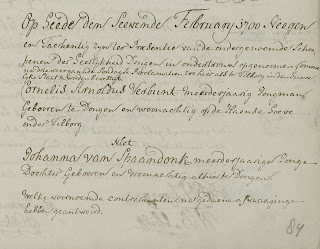 Op Heede den Seevende February 1700 Neegen
en Tachentig zyn ter Presentie van de ondergenoemde Sche
penen der Heerlykheid Dongen in ondertrouw opgenomen
na die voorgaande
Cornelis Arnoldus Verbunt meerderjaarig Jongman
Gebooren te Dongen en woonachtig op de Haense hoeve
onder Tilborg
Met
Johanna van Spaandonk meerderjaarige Jonge
Dochter Gebooren en Woonachtig alhier te Dongen
Welke voornoemde contrecanten na gedaene afvraaginge
hebben geantwoord
84